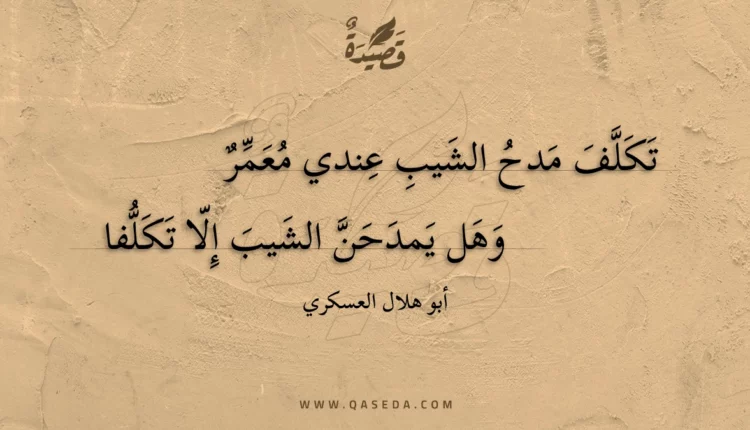 قَصِيْدَةٌ
تَكَلَّفَ مَدحُ الشَيبِ عِندي مُعَمِّرٌ
وَهَل يَمدَحَنَّ الشَيبَ إِلّا تَكَلُّفا
أبو هلال العسكري
WWW.QASEDA.COM